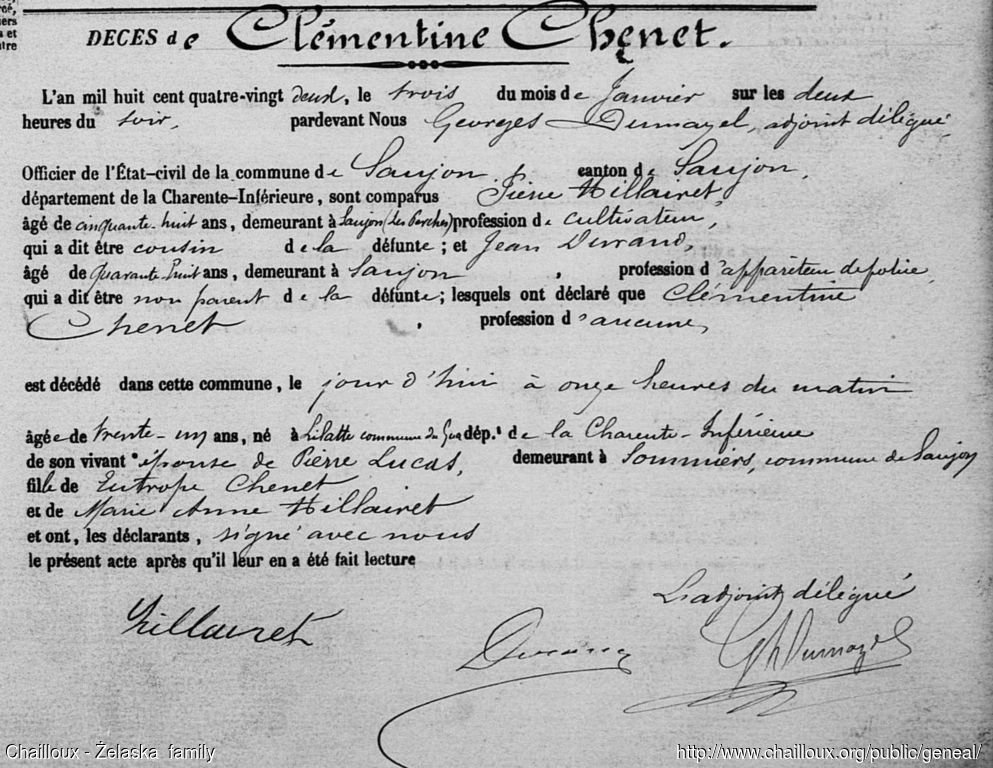 DECES de Clémentine Chenet.
L'an mil huit cent quatre-vingt deux, le trois du mois de Janvier sur les deux
heures du soir, pardevant Nous Georges Dumazel, adjoint délégué
Officier de l'État-civil de la commune de Saujon, canton de Saujon,
département de la Charente-Inférieure, sont comparus Pierre Hillairet,
âgé de cinquante-huit ans, demeurant à Saujon (Les Perches) profession de cultivateur,
qui a dit être cousin de la défunte; et Jean Durand,
âgé de quarante-huit ans, demeurant à Saujon, profession d'appariteur de police,
qui a dit être non parent de la défunte; lesquels ont déclaré que Clémentine
Chenet, profession d'aucune,
est décédé dans cette commune, le jour d'hui à onze heures du matin
âgée de trente-un ans, né à commune du Gua dép.t de la Charente-Inférieure
de son vivant épouse de Pierre Lucas, demeurant à Sommiers, commune de Saujon
fille de Eutrope Chenet
et de Marie Anne Hillairet
et ont, les déclarants, signé avec nous
le présent acte après qu'il leur en a été fait lecture
L'adjoint délégué
Hillairet Durand Gh Dumazel
Chailloux - Želaska family http://www.chailloux.org/public/geneal/